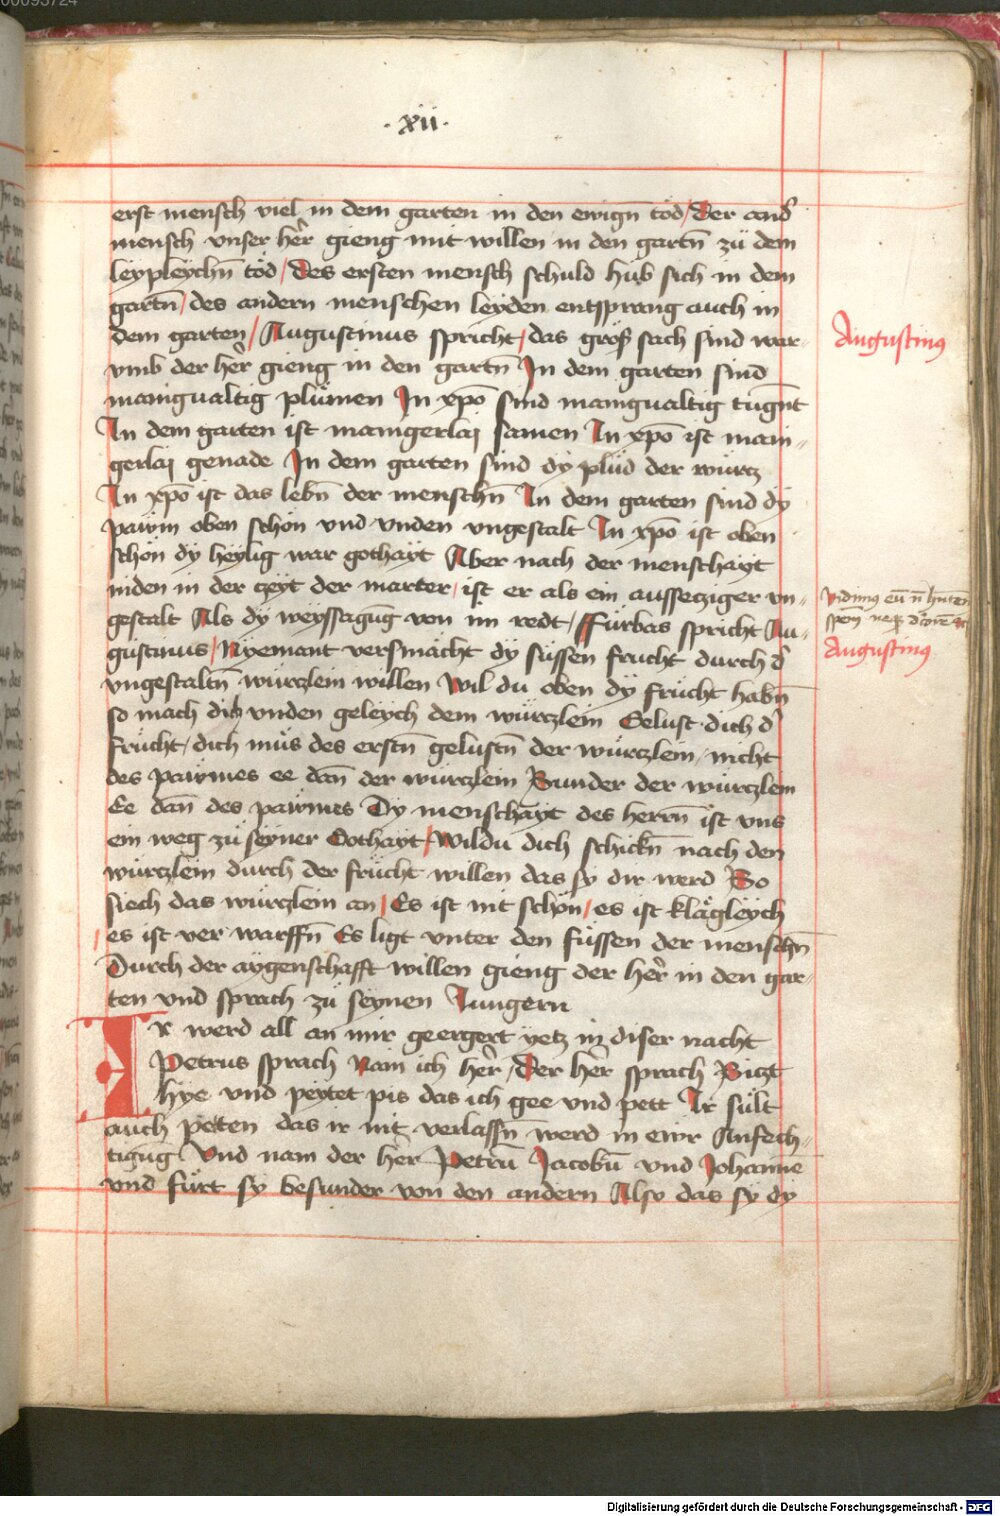 00093724
·xii·
erst mensch viel in dem garten in den ewign tod / Der and̉
mensch vnser her̉ gieng mit willen in den gartn̄ zü dem
leypleychn̄ töd / Des ersten mensch schuld hüb sich in dem
gartn̄ / des andern menschen leyden entsprang auch in
dem garten / Augustinus spricht / das groß sach sind war-
vmb der her̉ gieng in den gartn̄ In dem garten sind
manigualtig plümen In xpō sind manigualtig tugn̄t
In dem garten ist manigerlaj samen In xpō ist mani-
gerlaj genade In dem garten sind dy plüd der würtz
In xpō ist das lebn̄ der menschn̄ In dem garten sind dÿ
pawm oben schön vnd vnden vngestalt In xpō ist oben
schön dÿ heylig war gothayt Aber nach der menschayt
niden in der czeyt der marter / ist er als ein aussecziger vn-
gestalt Als dÿ weyssagūg von im redt / Fürbas spricht Au-
gustinus / Nyemant versmächt dÿ süssen frucht durch d̉
vngestaltn̄ würczlein willen Wil du oben dÿ frücht habn̄
so mach dich vnden geleych dem würczlein Gelust dich d̉
frücht / dich müs des erstn̄ gelustn̄ der würczlein / nicht
des pawmes ee dan̄ der würczlein Sunder der würczlein
Ee dan̄ des pawmes Dy menschayt des herrn̄ ist vns
ein weg zü seyner Gothayt / Wildu dich schickn̄ nach den
würczlein durch der frücht willen das sy dir werd So
siech das würczlein an / Es ist nit schön / es ist klägleych
/ es ist ver warffn̄ Es ligt vnter den füssen der menschn̄
Durch der aygenschafft willen gieng der her̉ in den gar-
ten vnd sprach zü seynen Jungern
Ir werd all an mir geergert yetz in diser nacht
Petrus sprach Nam ich her̉ / Der her̉ sprach Siczt
hye vnd peytet pis das ich gee vnd pett Ir sült
auch peten das ir nit verlassn̄ werd in ewr Anfech-
tigūg Vnd nam der her̉ Petrū Jacobū vnd Johannē
vnd fürt sy besunder von den andern Also das sy dÿ
Augustinus
Augustinus
Digitalisierung gefördert durch die Deutsche Forschungsgemeinschaft - DFG